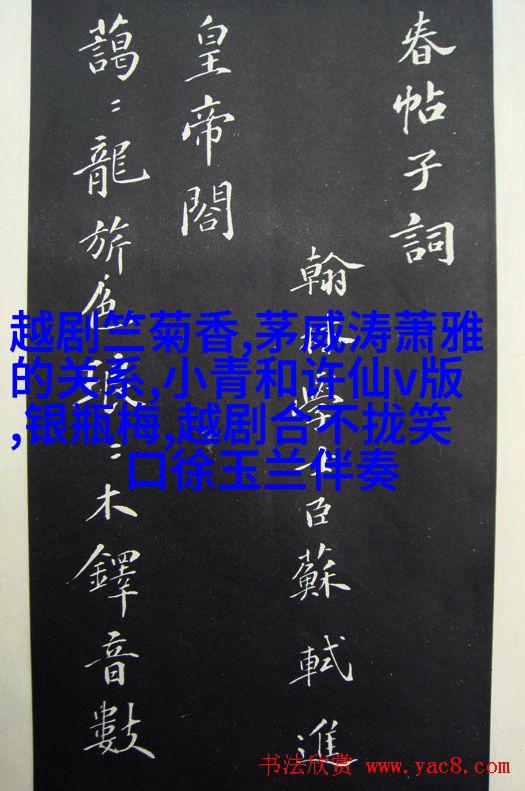 春帖子詞
翰林學士臣蘇軾進
皇帝閣
藹〻龍旂色琅〻木鐸音數
越剧竺菊香,茅威涛萧雅
的关系,小青和许仙v版
,银瓶梅,越剧合不拢笑
口徐玉兰伴奏
书法欣赏 www.yac8.com